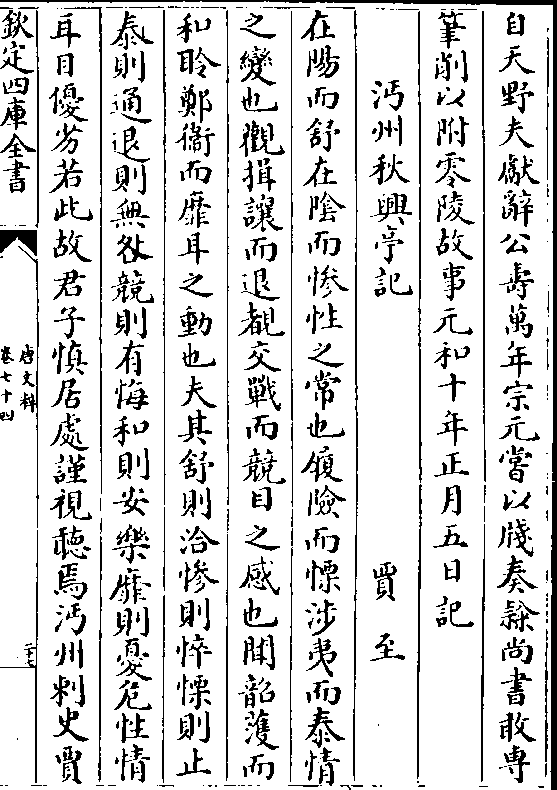 自天野夫獻辭公壽萬年宗元嘗以牋奏隸尚書敢專
筆削以附零陵故事元和十年正月五日記
沔州秋興亭記 賈至
在陽而舒在陰而慘性之常也履險而慄涉夷而泰情
之變也觀揖讓而退覩交戰而競目之感也聞韶濩而
和聆鄭衞而靡耳之動也夫其舒則洽慘則悴慄則止
泰則通退則無咎競則有悔和則安樂靡則憂危性情
耳目優劣若此故君子慎居處謹視聽焉沔州刺史賈
欽定四庫全書
唐文粹
卷七十四